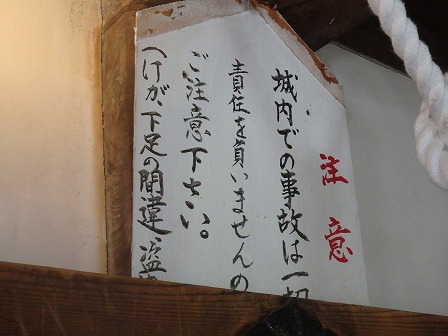 注意
城内での事故は一切
責任を負いませんの
ご注意下さい。
へけが、下足の間違、盗